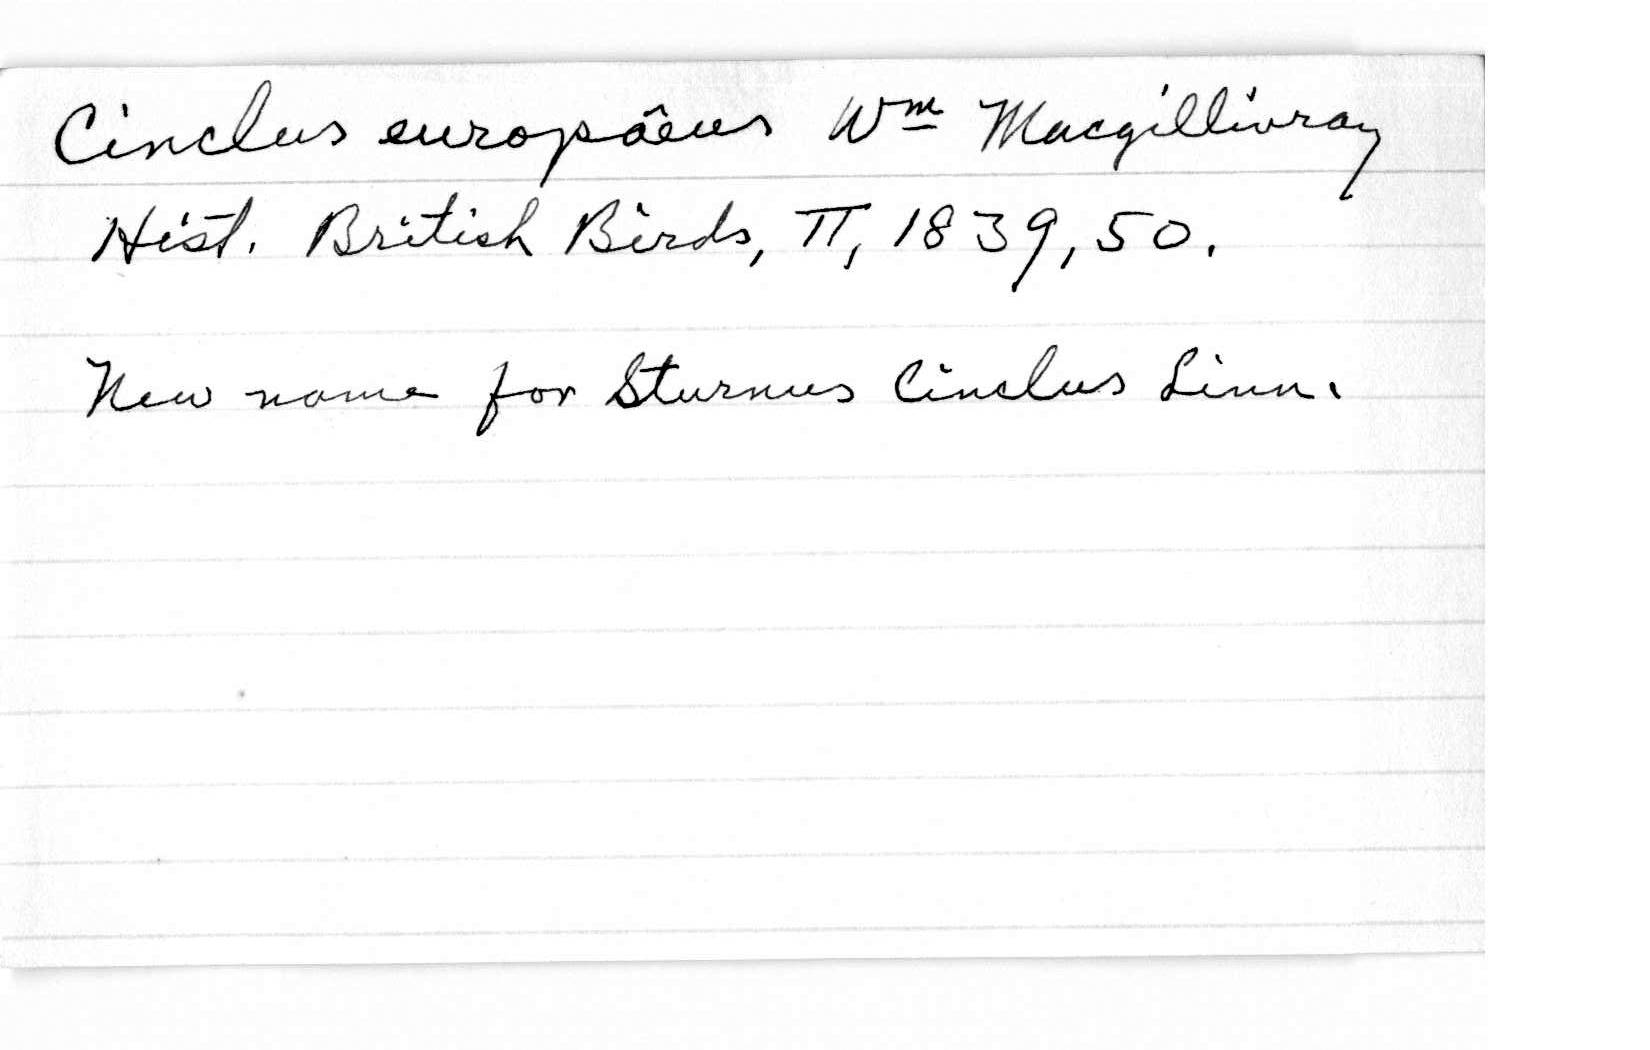 Cinclus europâeus Wm Macgillivray
Hist. British Birds, II, 1839, 50.
New name for Sturnus Cinclus Linn.